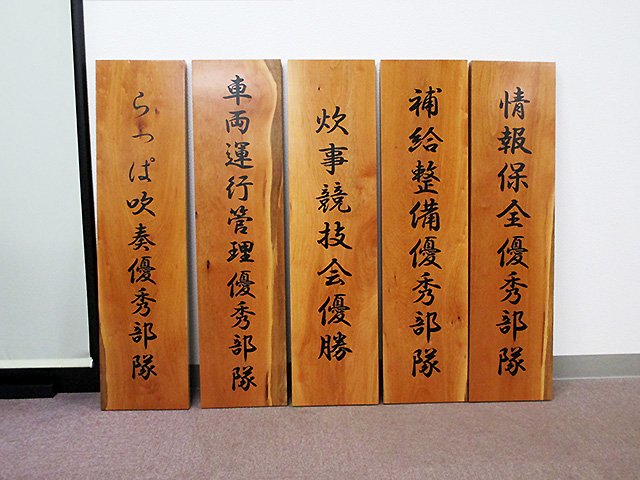 情報保全優秀部隊
補給整備優秀部隊
炊事競技会優勝
車両運行管理優秀部隊
らっぱ吹奏優秀部隊